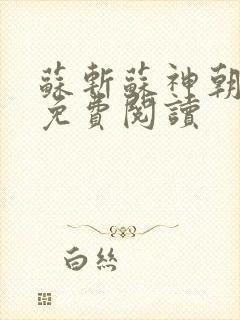 蘇斬蘇神朝
免費閱讀
白絲